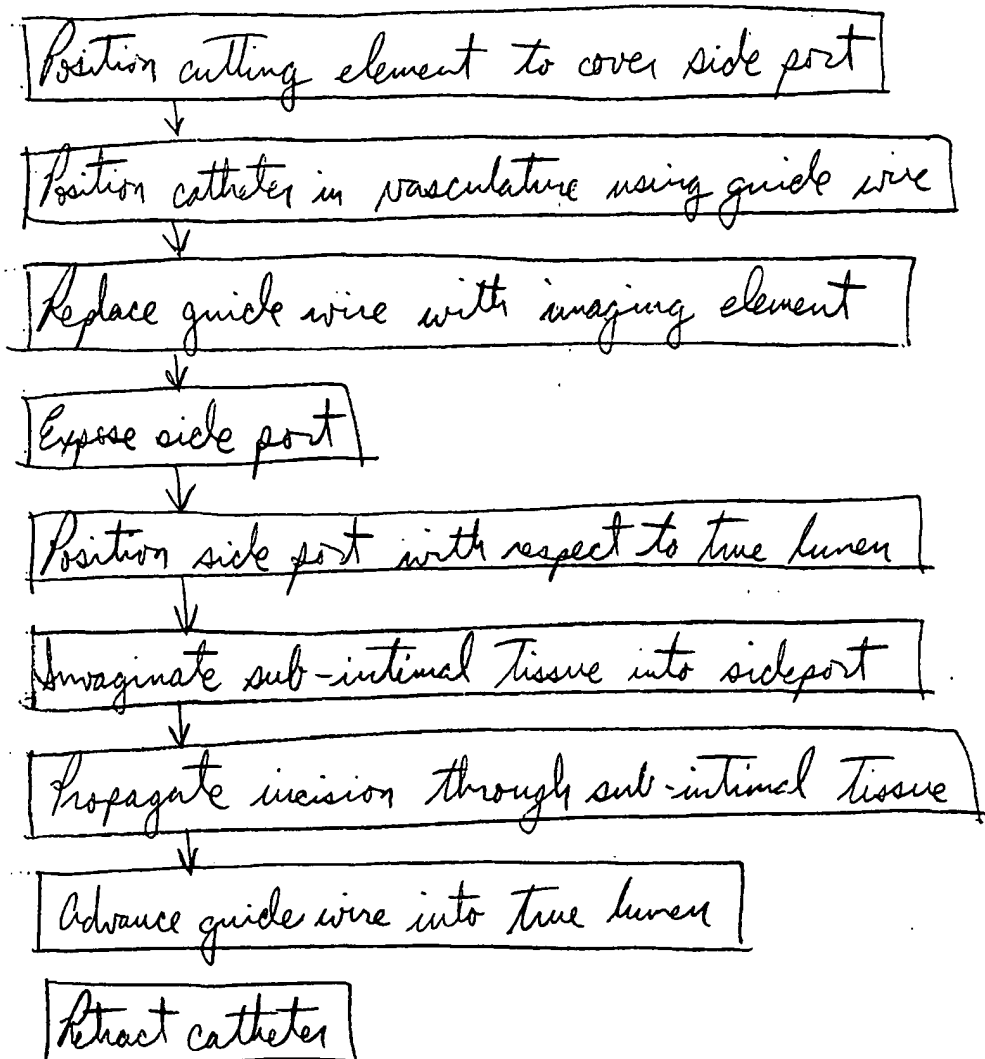 Position cutting element to cover side port
Position catheter in vasculature using guide wire
Replace guide wire with imaging element
Expose side port
Position side port with respect to true lumen
Invaginate sub-intimal Tissue into sideport
Propagate incision through sub-intimal Tissue
Advance guide wire into true lumen
Retract catheter